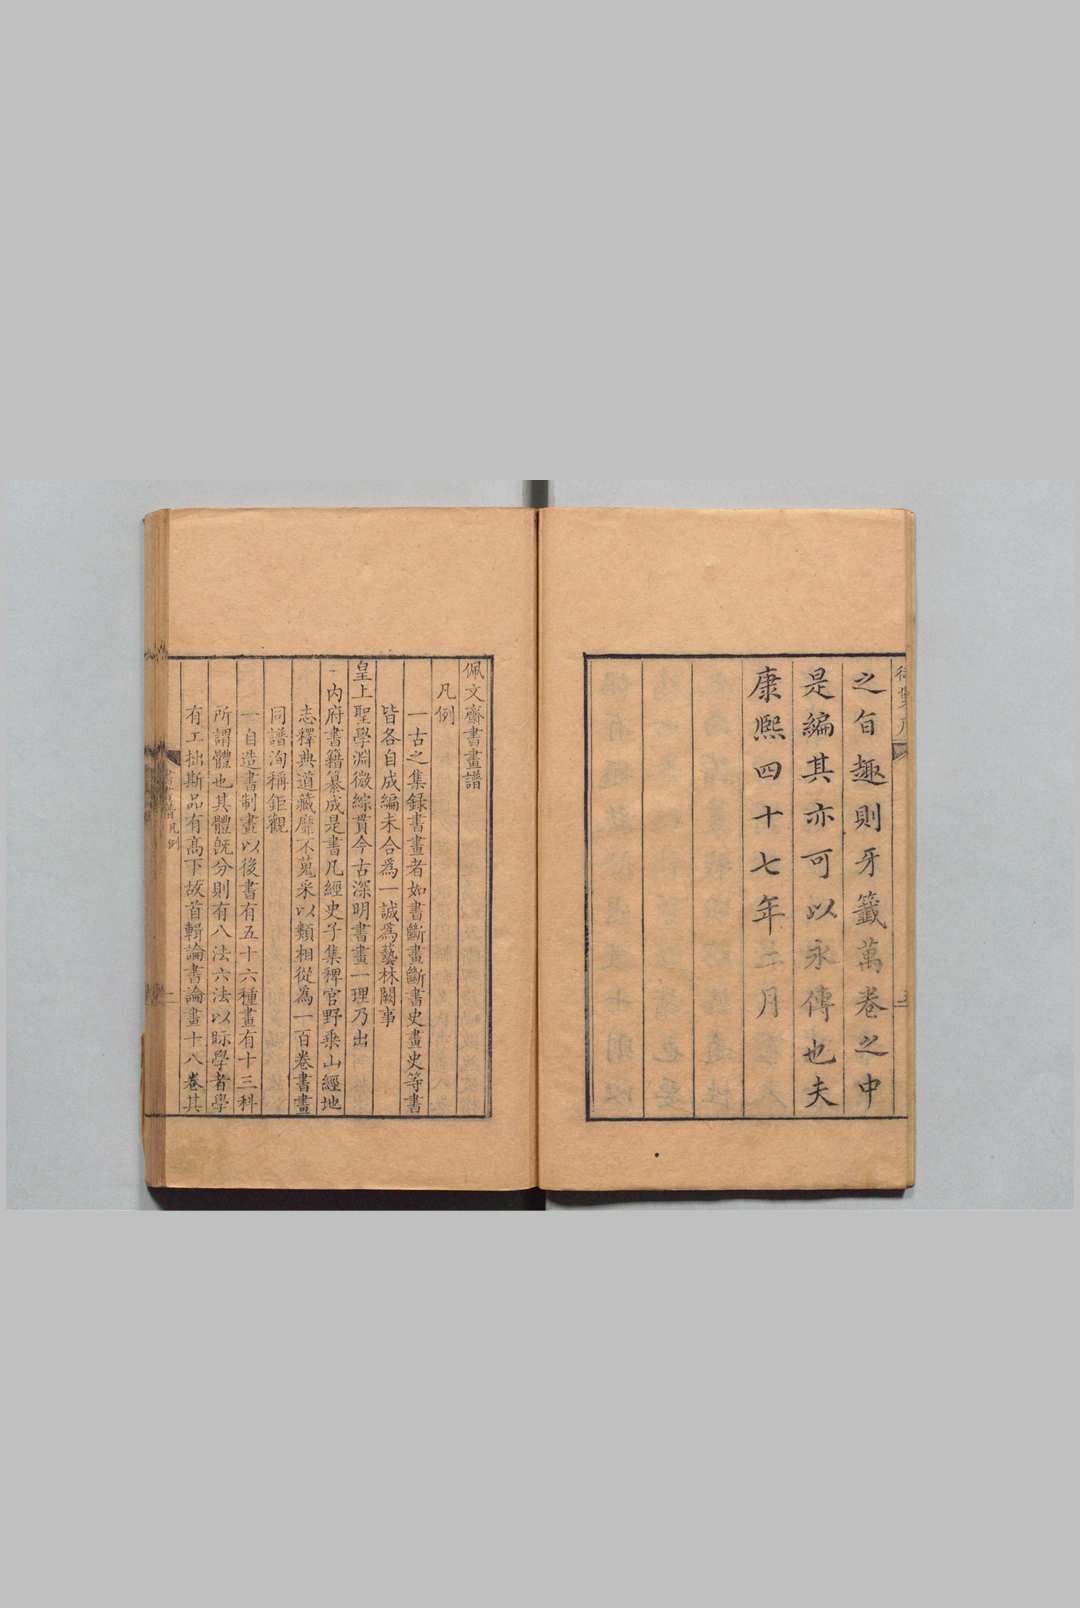 之旨趣則牙籤萬卷之中
是編其亦可以永傳也夫
康熙四十七年二月
佩文齋書畫譜
凡例
一古之集録書畫者如書斷畫斷書史畫史等書
皆各自成編未合爲一誠爲藝林闕事
皇上聖學淵微綜貫今古深明書畫一理乃出
内府書籍纂成是書凡經史子集稗官野乘山經地
志釋典道藏靡不蒐采以類相從爲一百卷書畫
同譜洵稱鉅觀
一自造書制畫以後書有五十六種畫有十三科
所謂體也其體旣分則有八法六法以眎學者學
有工拙斯品有高下故首輯論書論畫十八卷其
書畫譜凡例
一